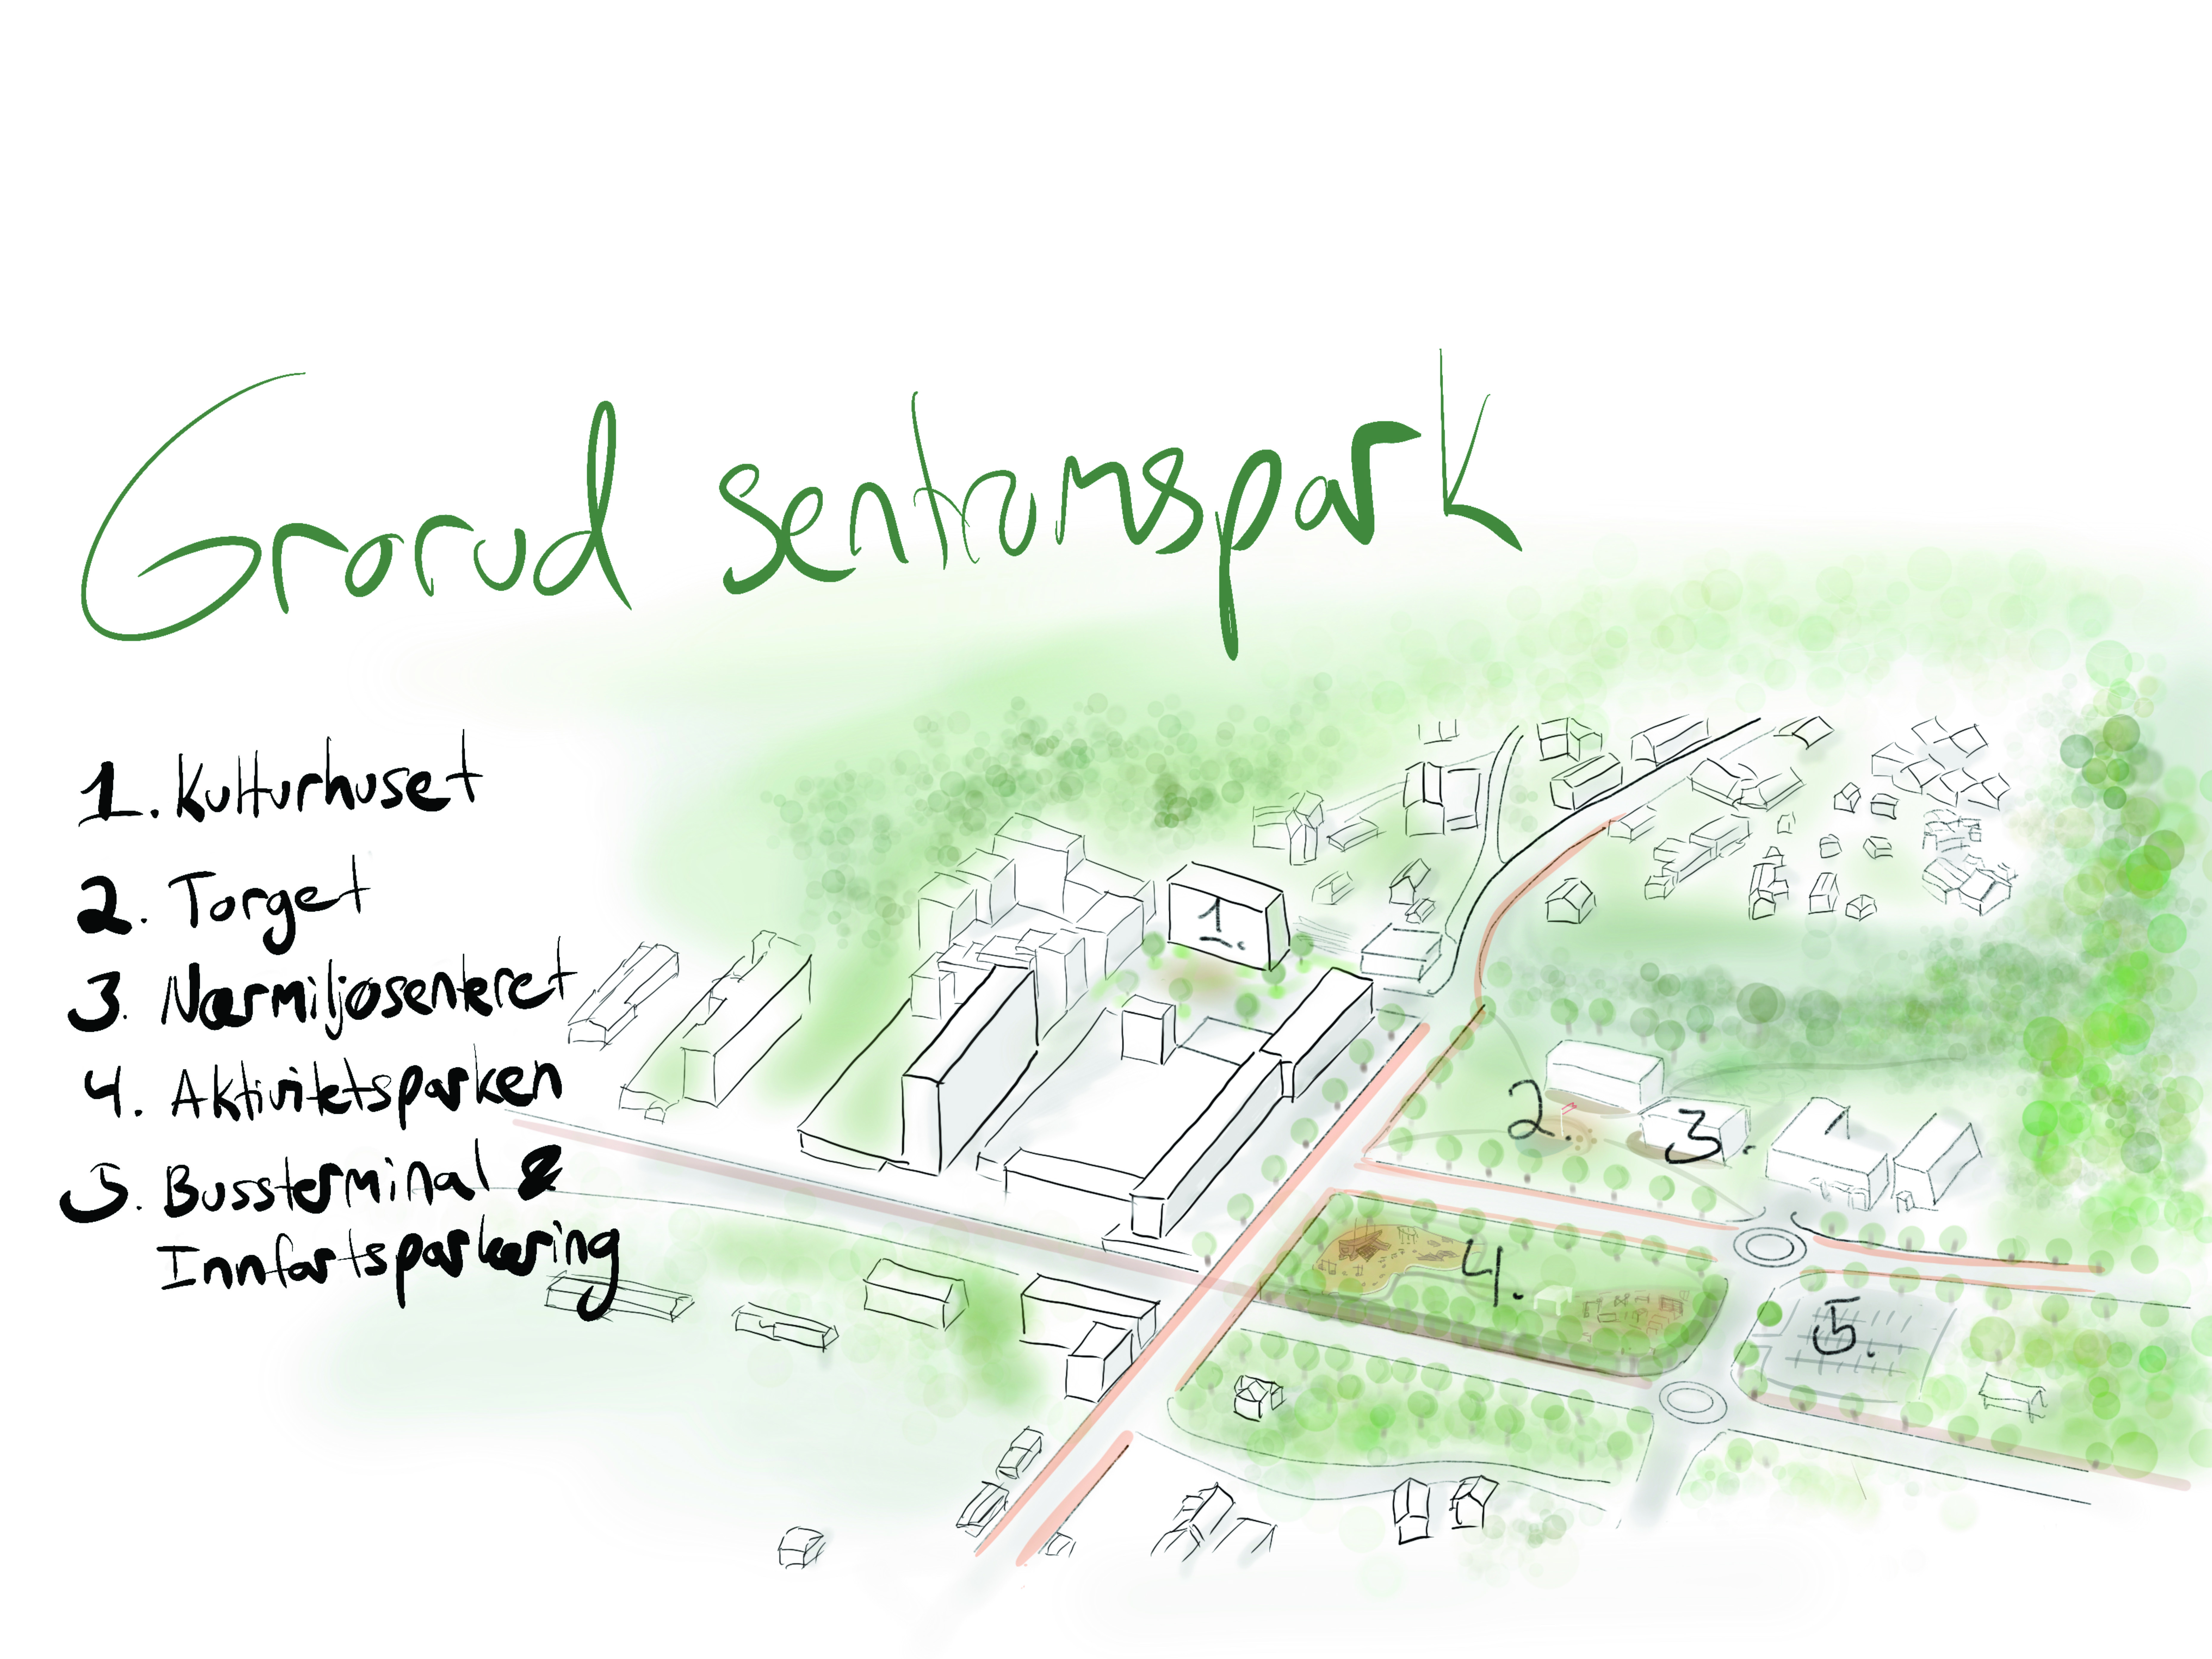 Grorud sentrumspark
1. Kulturhuset
2. Torget
3. Nærmiljøsenteret
4. Aktivitetsparken
5. Bussterminal &
Innfartsparkering
1.
2.
3.
4.
5.